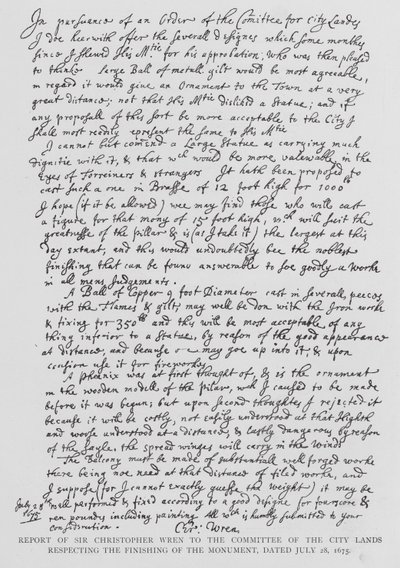 In pursuance of an Order of the Comittee for City Landes
I doe heerwith offer the severall designes which some monthes
since I shewed His Mtie for his approbation, who was then pleased
to thinke a large Ball of metall gilt would be most agreeable,
in regard it would give an Ornament to the Town at a very
great distance; not that His Mtie disliked a Statue; and if
any proposall of this sort be more acceptable to the City I
shall most readily represent the same to His Mtie
I cannot but comend a Large Statue as carrying much
dignitie with it, & that wch would be more valewable in the
Eyes of Forreiners & strangers. It hath been proposed to
cast such a one in Brasse of 12 foot high for 1000lb
I hope (if it be allowed) wee may find those who will cast
a figure for that mony of 15 foot high, wch will suit the
greatnesse of the pillar & is (as I take it) the largest at this
day extant; and this would undoubtedly bee the noblest
finishing that can be found answerable to soe goodly a worke
in all mens Judgements.
A Ball of Copper, 9 foot Diameter cast in severall peeces
with the Flames & gilt, may well be don with the Iron worke
& fixing for 350lb and this will be most acceptable of any
thing inferior to a Statue, by reason of the good appearance
at distance, and because one may goe up into it; & upon
occasion use it for fireworks.
A Phœnix was at first thought of, & is the ornament
in the wooden modell of the pillar, wch I caused to be made
before it was begun; but upon second thoughtes I rejected it
because it will be costly, not easily understood at that Highth
and worse understood at a distance & lastly dangerous by reason
of the sayle, the spread winges will carry in the winde.
The Balcony must be made of substantiall well forged worke
there being noe need at that distance of filed worke, and
I suppose (for I cannot exactly guesse the weight) it may be
well performed & fixed according to a good designe for fourscore &
July 28
1675
ten poundes including painting All wch is humbly submitted to your
consideration.
Chr: Wren.
REPORT OF SIR CHRISTOPHER WREN TO THE COMMITTEE OF THE CITY LANDS
RESPECTING THE FINISHING OF THE MONUMENT, DATED JULY 28, 1675.